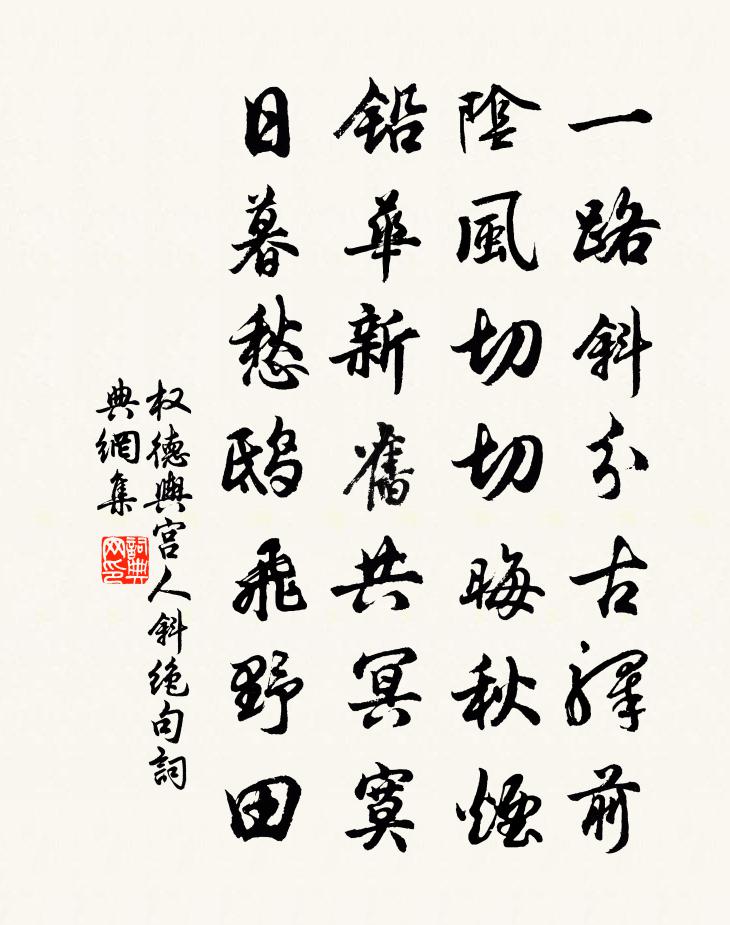 一路斜分古驛前
陰風切切晦秋煙
鉛華新舊共冥寞
日暮愁鴟飛野田
权德輿宫人斜绝句詞
典網集
詞典
网印